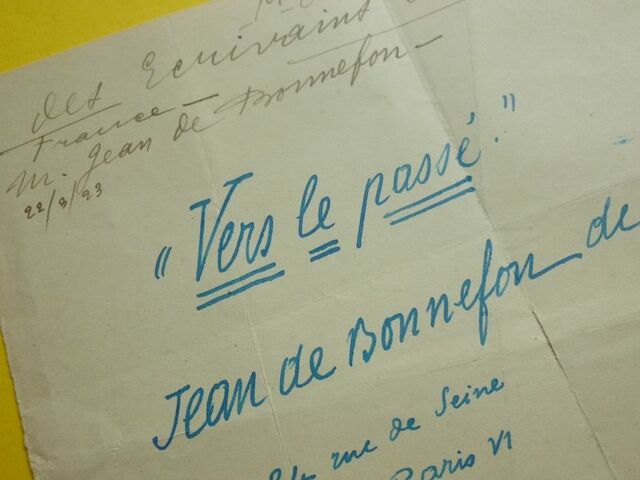 des Ecrivains
France —
M. Jean de Bonnefon —
22/8/23
" Vers le passé. "
Jean de Bonnefon de
rue de Seine
Paris VI